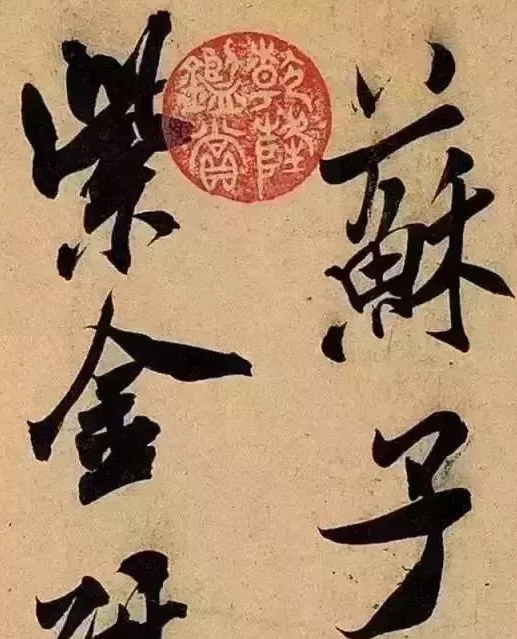 蘇子
乾隆鑑賞
紫金研